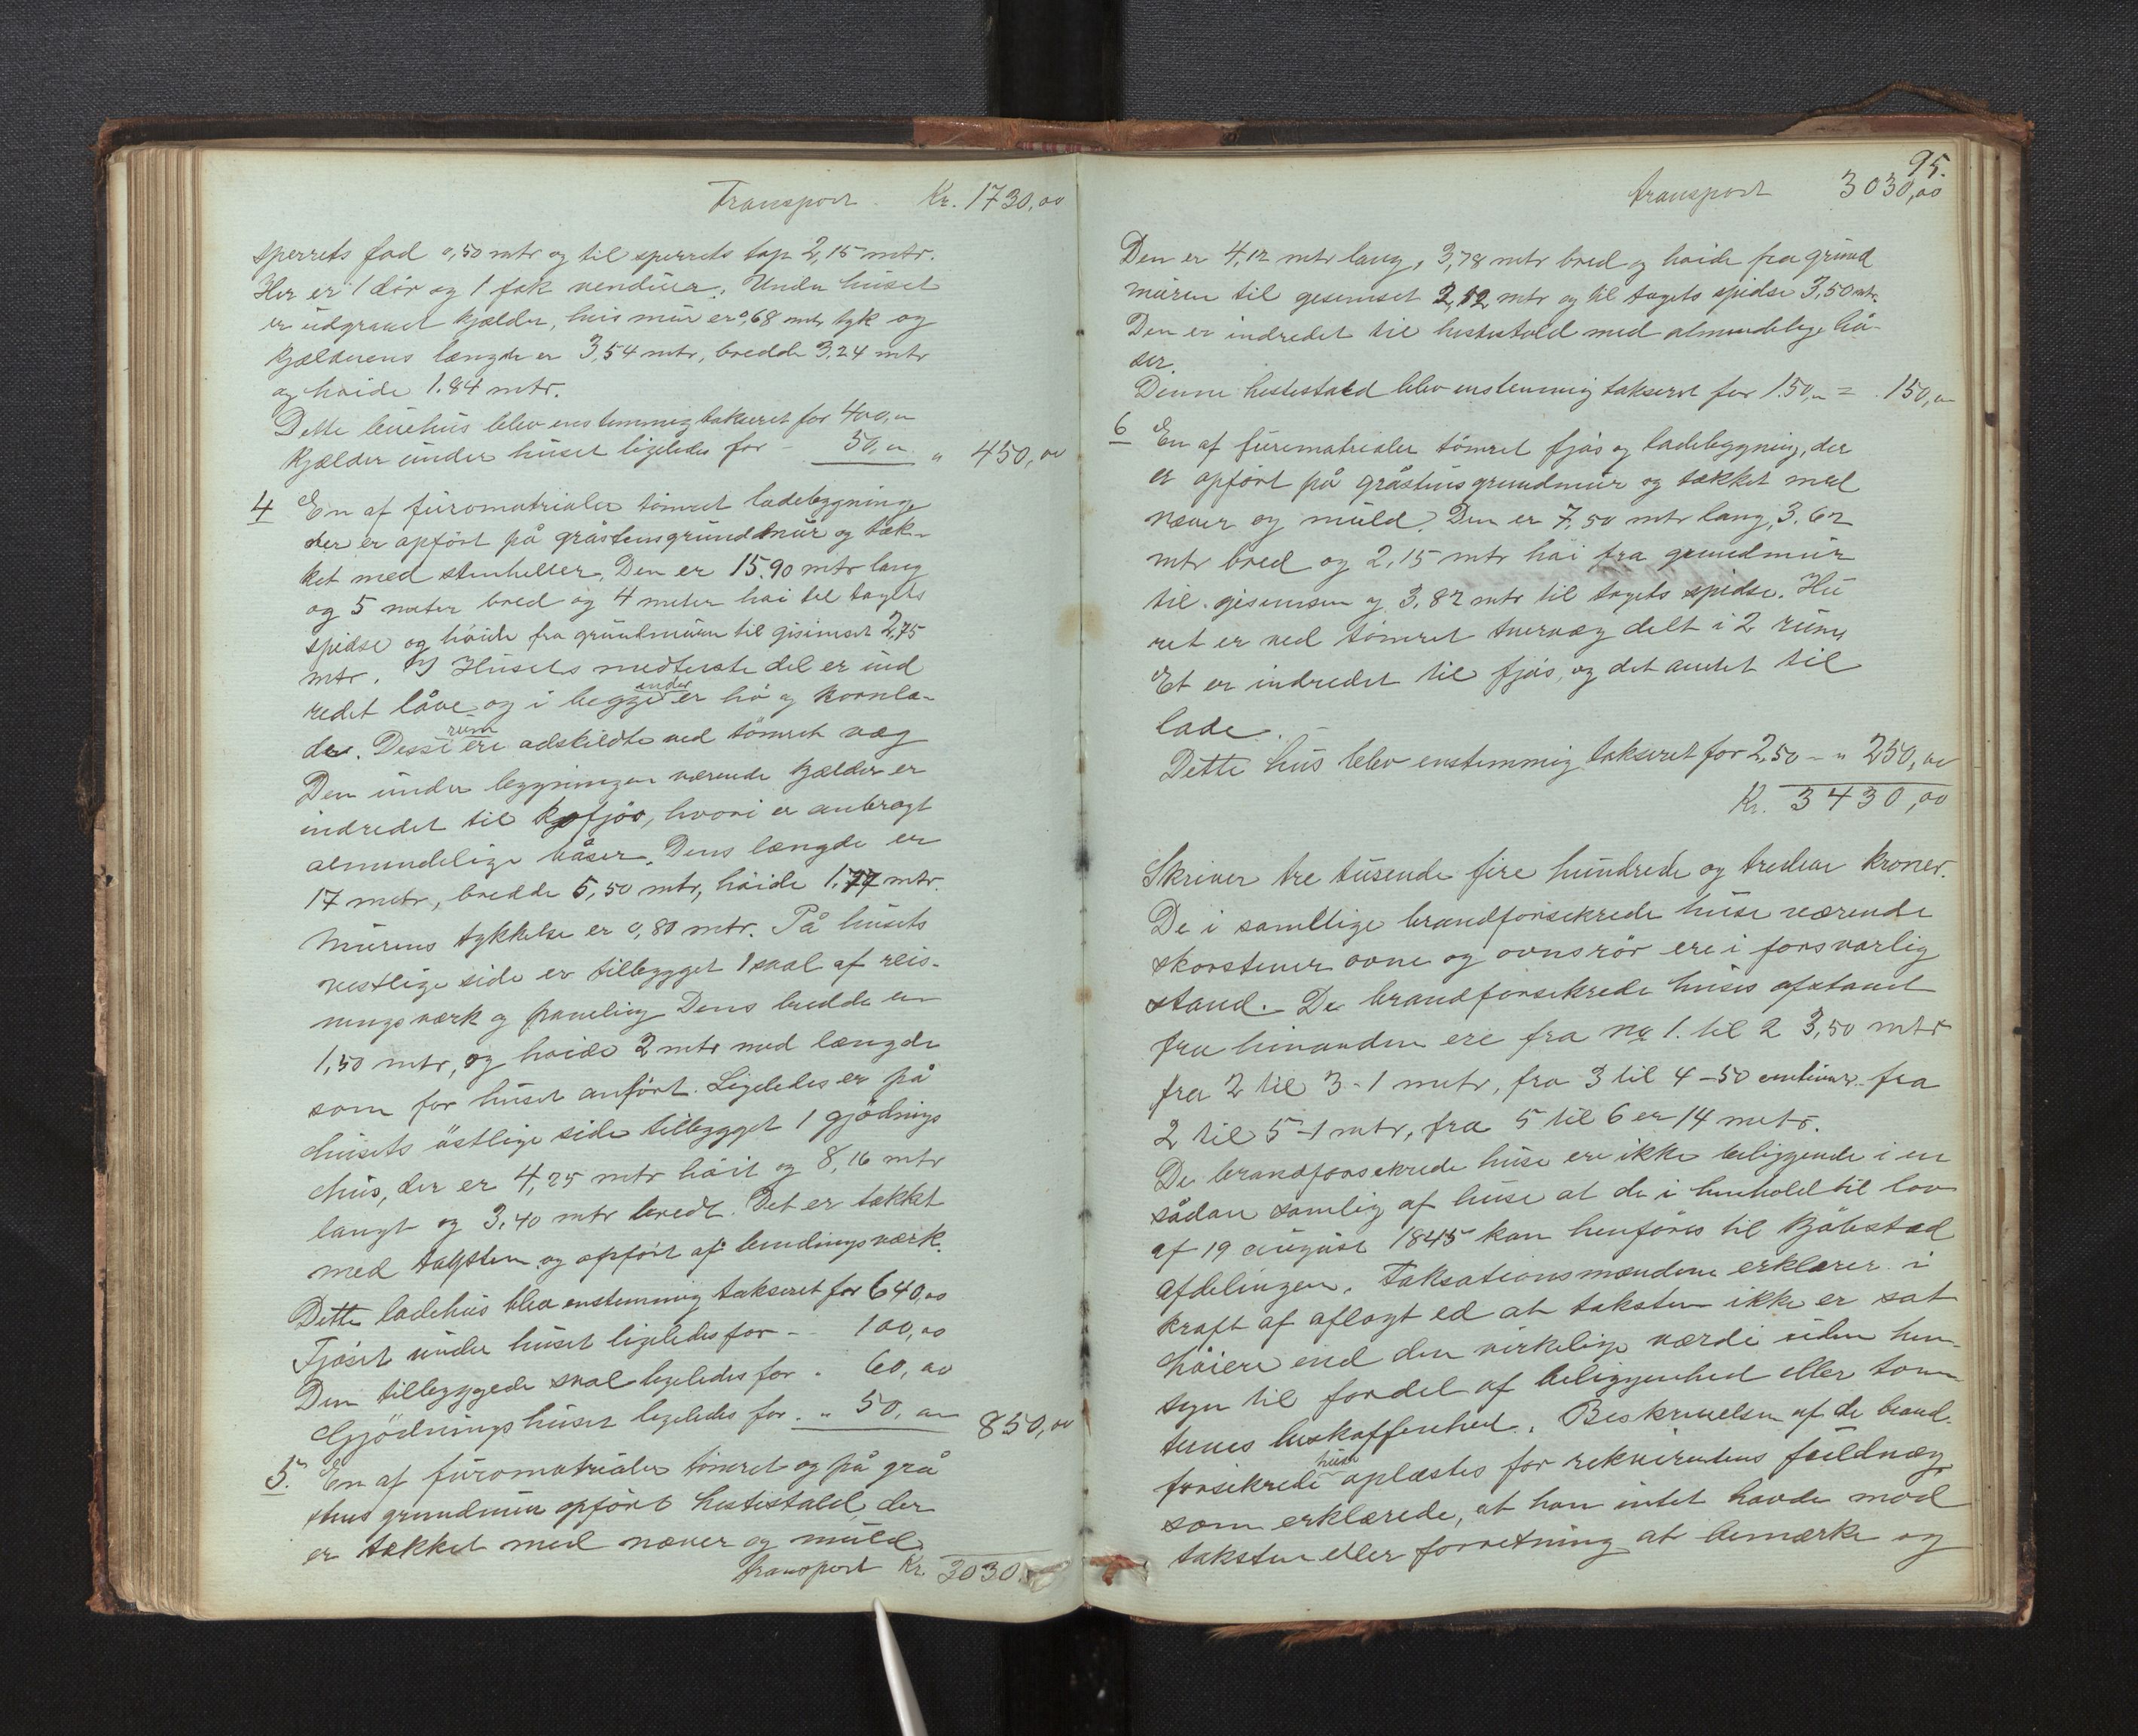 Transport Kr. 1730,00
sperrets fod 0,50 mtr og til sperrets top 2,15 mtr.
Her er 1 dör og 1 fak venduer. Under huset
er udgravet kjælder, hvis mur er 0,68 mtr tyk og
kjælderens længde er 3,54 mtr, bredde 3,24 mtr
og höide 1.84 mtr.
Dette buehus blev enstemmig takseret for 400,00
Kjælder under huset ligeledes for - 50,00 " 450,00
4 En af furomatrialer tömret ladebygning
der er opfört på gråstensgrundmur og tæk-
ket med stenheller. Den er 15.90 mtr lang
og 5 meter bred og 4 meter höi til tagets
spidse og höide fra grundmuren til gisimset 2,75
mtr. I Husets mederste del er ind
redet låve og i begge ender er hö og kornla-
der. Desse rum ere adskildte ved tömret væg
Den under bygningen værende kjælder er
indredet til kofjös, hvori er anbragt
almindelige båser. Dens længde er
17 metr, bredde 5,50 mtr, höide 1.77 mtr.
Murens tykkelse er 0,80 mtr. På husets
vestlige side er tilbygget 1 sval af reis-
ningsværk og paneling Dens bredde er
1,50 mtr, og höide 2 mtr med længde
som for huset anfört. Ligeledes er på
husets östlige side tilbygget 1 gjödnings
hus, der er 4,25 mtr höit og 8,16 mtr
langt og 3,40 mtr bredt. Det er tækket
med tagsten og opfört af bindingsværk.
Dette ladehus blev enstemmig takseret for 640,00
Fjöset under huset ligeledes for - 100,00
Den tilbyggede sval ligeledes for . 60,00
Gjödningshuset ligeledes for . " 50,00 850,00
5. En af furomatrialer tömret og på grå
stens grundmur opfört hestestald, der
er tækket med næver og muld
transport Kr. 3030.
95.
transport 3030,00
Den er 4,12 mtr lang, 3,78 mtr bred og höide fra grund
muren til gesimset 2,12 mtr og til tagets spidse 3,50 mtr.
Den er indredet til hestestald med almindelige bå-
ser.
Denne hestestald blev enstemmig takseret for 150,00 = 150,00
6 En af furematrialer tömret fjös og ladebygning, der
er opfört på gråstensgrundmur og tækket med
næver og muld. Den er 7,50 mtr lang, 3.62
mtr bred og 2,15 mtr höi fra grundmur
til gisimsen og 3,82 mtr til tagets spidse. Hu
set er ved tömret tvervæg delt i 2 rum
Et er indredet til fjös, og det andet til
lade.
Dette hus blev enstemmig takseret for 2,50 - " 250,00
Kr. 3430,00
Skriver tre tusende fire hundrede og tredeve kroner.
De i samtlige brandforsekrede huse værende
skorstener ovne og ovnsrör ere i forsvarlig
stand. De brandforsekrede huses afstand
fra hinanden ere fra no 1. til 2 3,50 mtr
fra 2 til 3 - 1 metr, fra 3 til 4 - 50 centimer. fra
2 til 5 - 1 mtr, fra 5 til 6 er 14 metr.
De brandforsekrede huse ere ikke beliggende i en
sådan samlig af huse at de i henhold til lov
af 19 august 1845 kan henföres til Kjöbstad
afdelingen. Taksationsmændene erklærer i
kraft af aflagt ed at taksten ikke er sat
höiere end den virkelige værdi uden hen-
syn til fordel af beliggenhed eller tom-
ternes beskaffenhed. Beskrivelsen af de brand-
forsekrede huse oplæstes for rekvirentens fuldmæg.
som erklærede, at han intet havde mod
taksten eller forretning at bemærke og